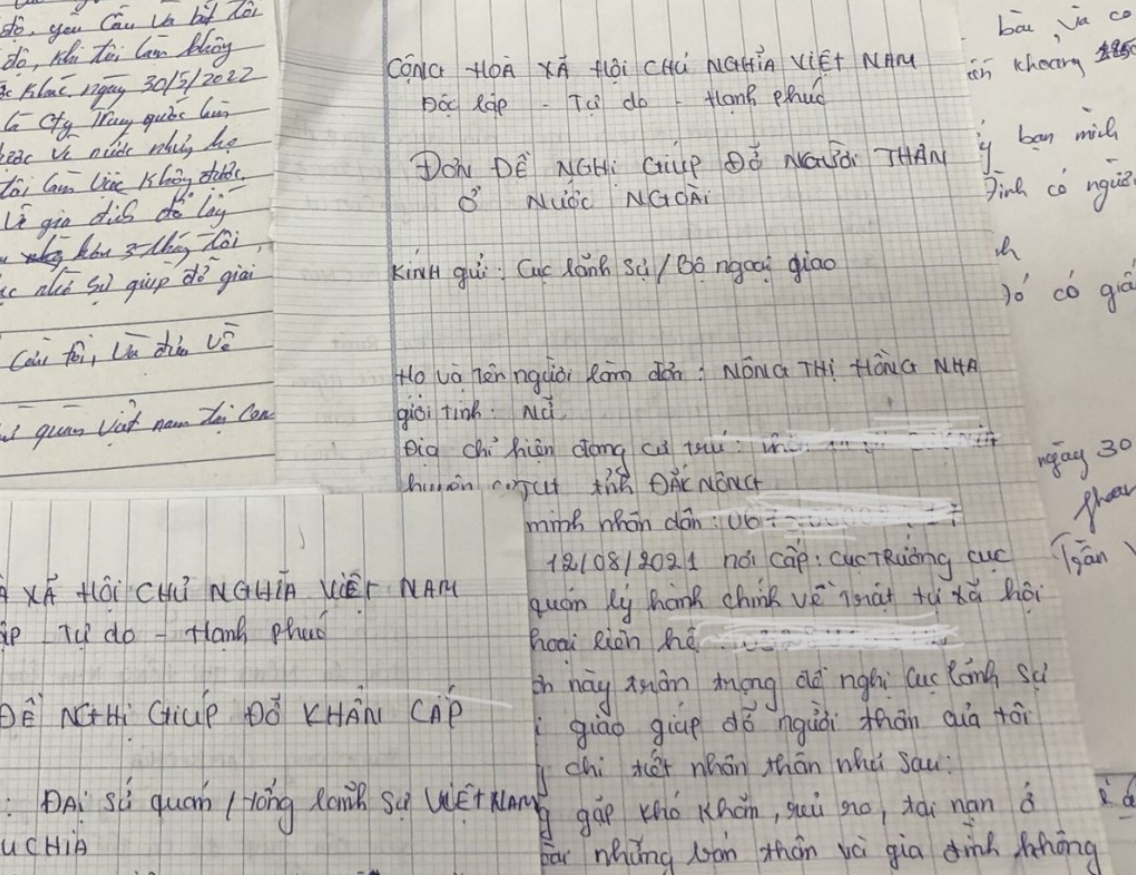 độ, yêu cầu và bắt tôi
độ, khi tôi làm không
khác. ngày 30/5/2022
là cty Trung quốc
về nước nhưng họ
tôi làm việc không được
về gia đình để lấy
hơn 3 tháng tôi
sứ giúp đỡ giải
của tôi, và đưa về
quán việt nam tại Cam
CỘNG HOÀ XÃ HỘI CHỦ NGHĨA VIỆT NAM
Độc lập - Tự do - Hạnh phúc
ĐƠN ĐỀ NGHỊ GIÚP ĐỠ NGƯỜI THÂN
Ở NƯỚC NGOÀI
KÍNH gửi: Cục lãnh sự / Bộ ngoại giao
Họ và Tên người làm đơn: NÔNG THỊ HỒNG NHA
giới tính: Nữ
Địa chỉ hiện đang cư trú:
huyện cưJut tỉnh ĐẮC NÔNG
minh nhân dân: 067
12/08/2021 nơi cấp: cục TRưởng cục
quản lý hành chính về Trật tự xã hội
thoại liên hệ
ơn này trân trọng đề nghị cục lãnh sự
i giao giúp đỡ người thân của tôi
chi tiết nhân thân như sau:
g gặp khó khăn, rủi ro, tai nạn ở
nhưng bản thân và gia đình không
XÃ HỘI CHỦ NGHĨA VIỆT NAM
ập - Tự do - Hạnh phúc
ĐỀ NGHỊ GIÚP ĐỠ KHẨN CẤP
: ĐẠI sứ quán / Tổng lãnh sự VIỆT NAM
UCHIA
bàu, và co
khoảng
ý bạn mình
Đình có người
h
Đó có giấ
ngày 30
Trần V